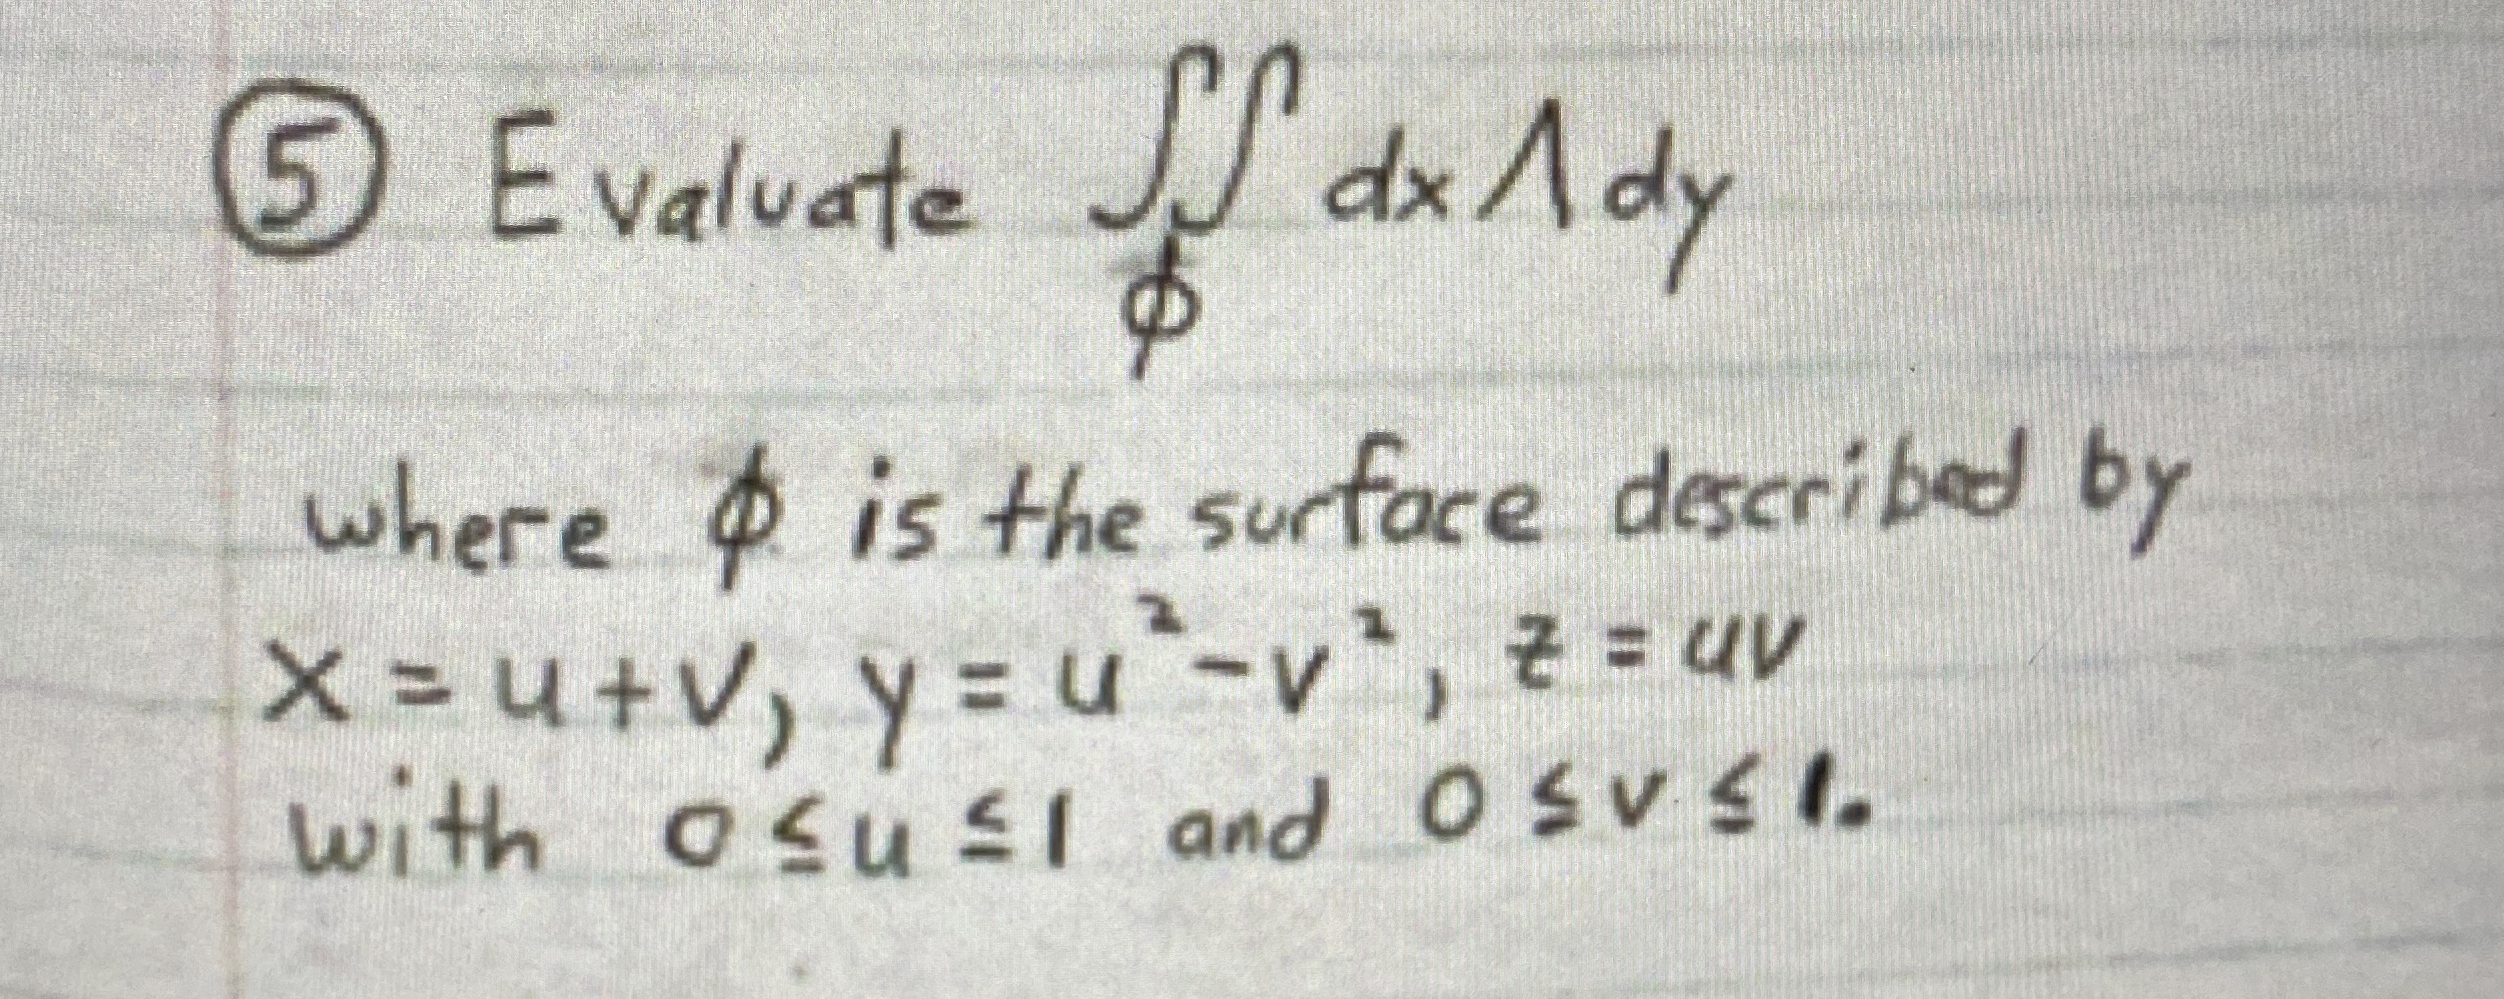 ⑤ Evaluate ∬_ϕ dx ∧ dy
where ϕ is the surface described by
x = u + v, y = u² - v², z = uv
with 0 ≤ u ≤ 1 and 0 ≤ v ≤ 1.